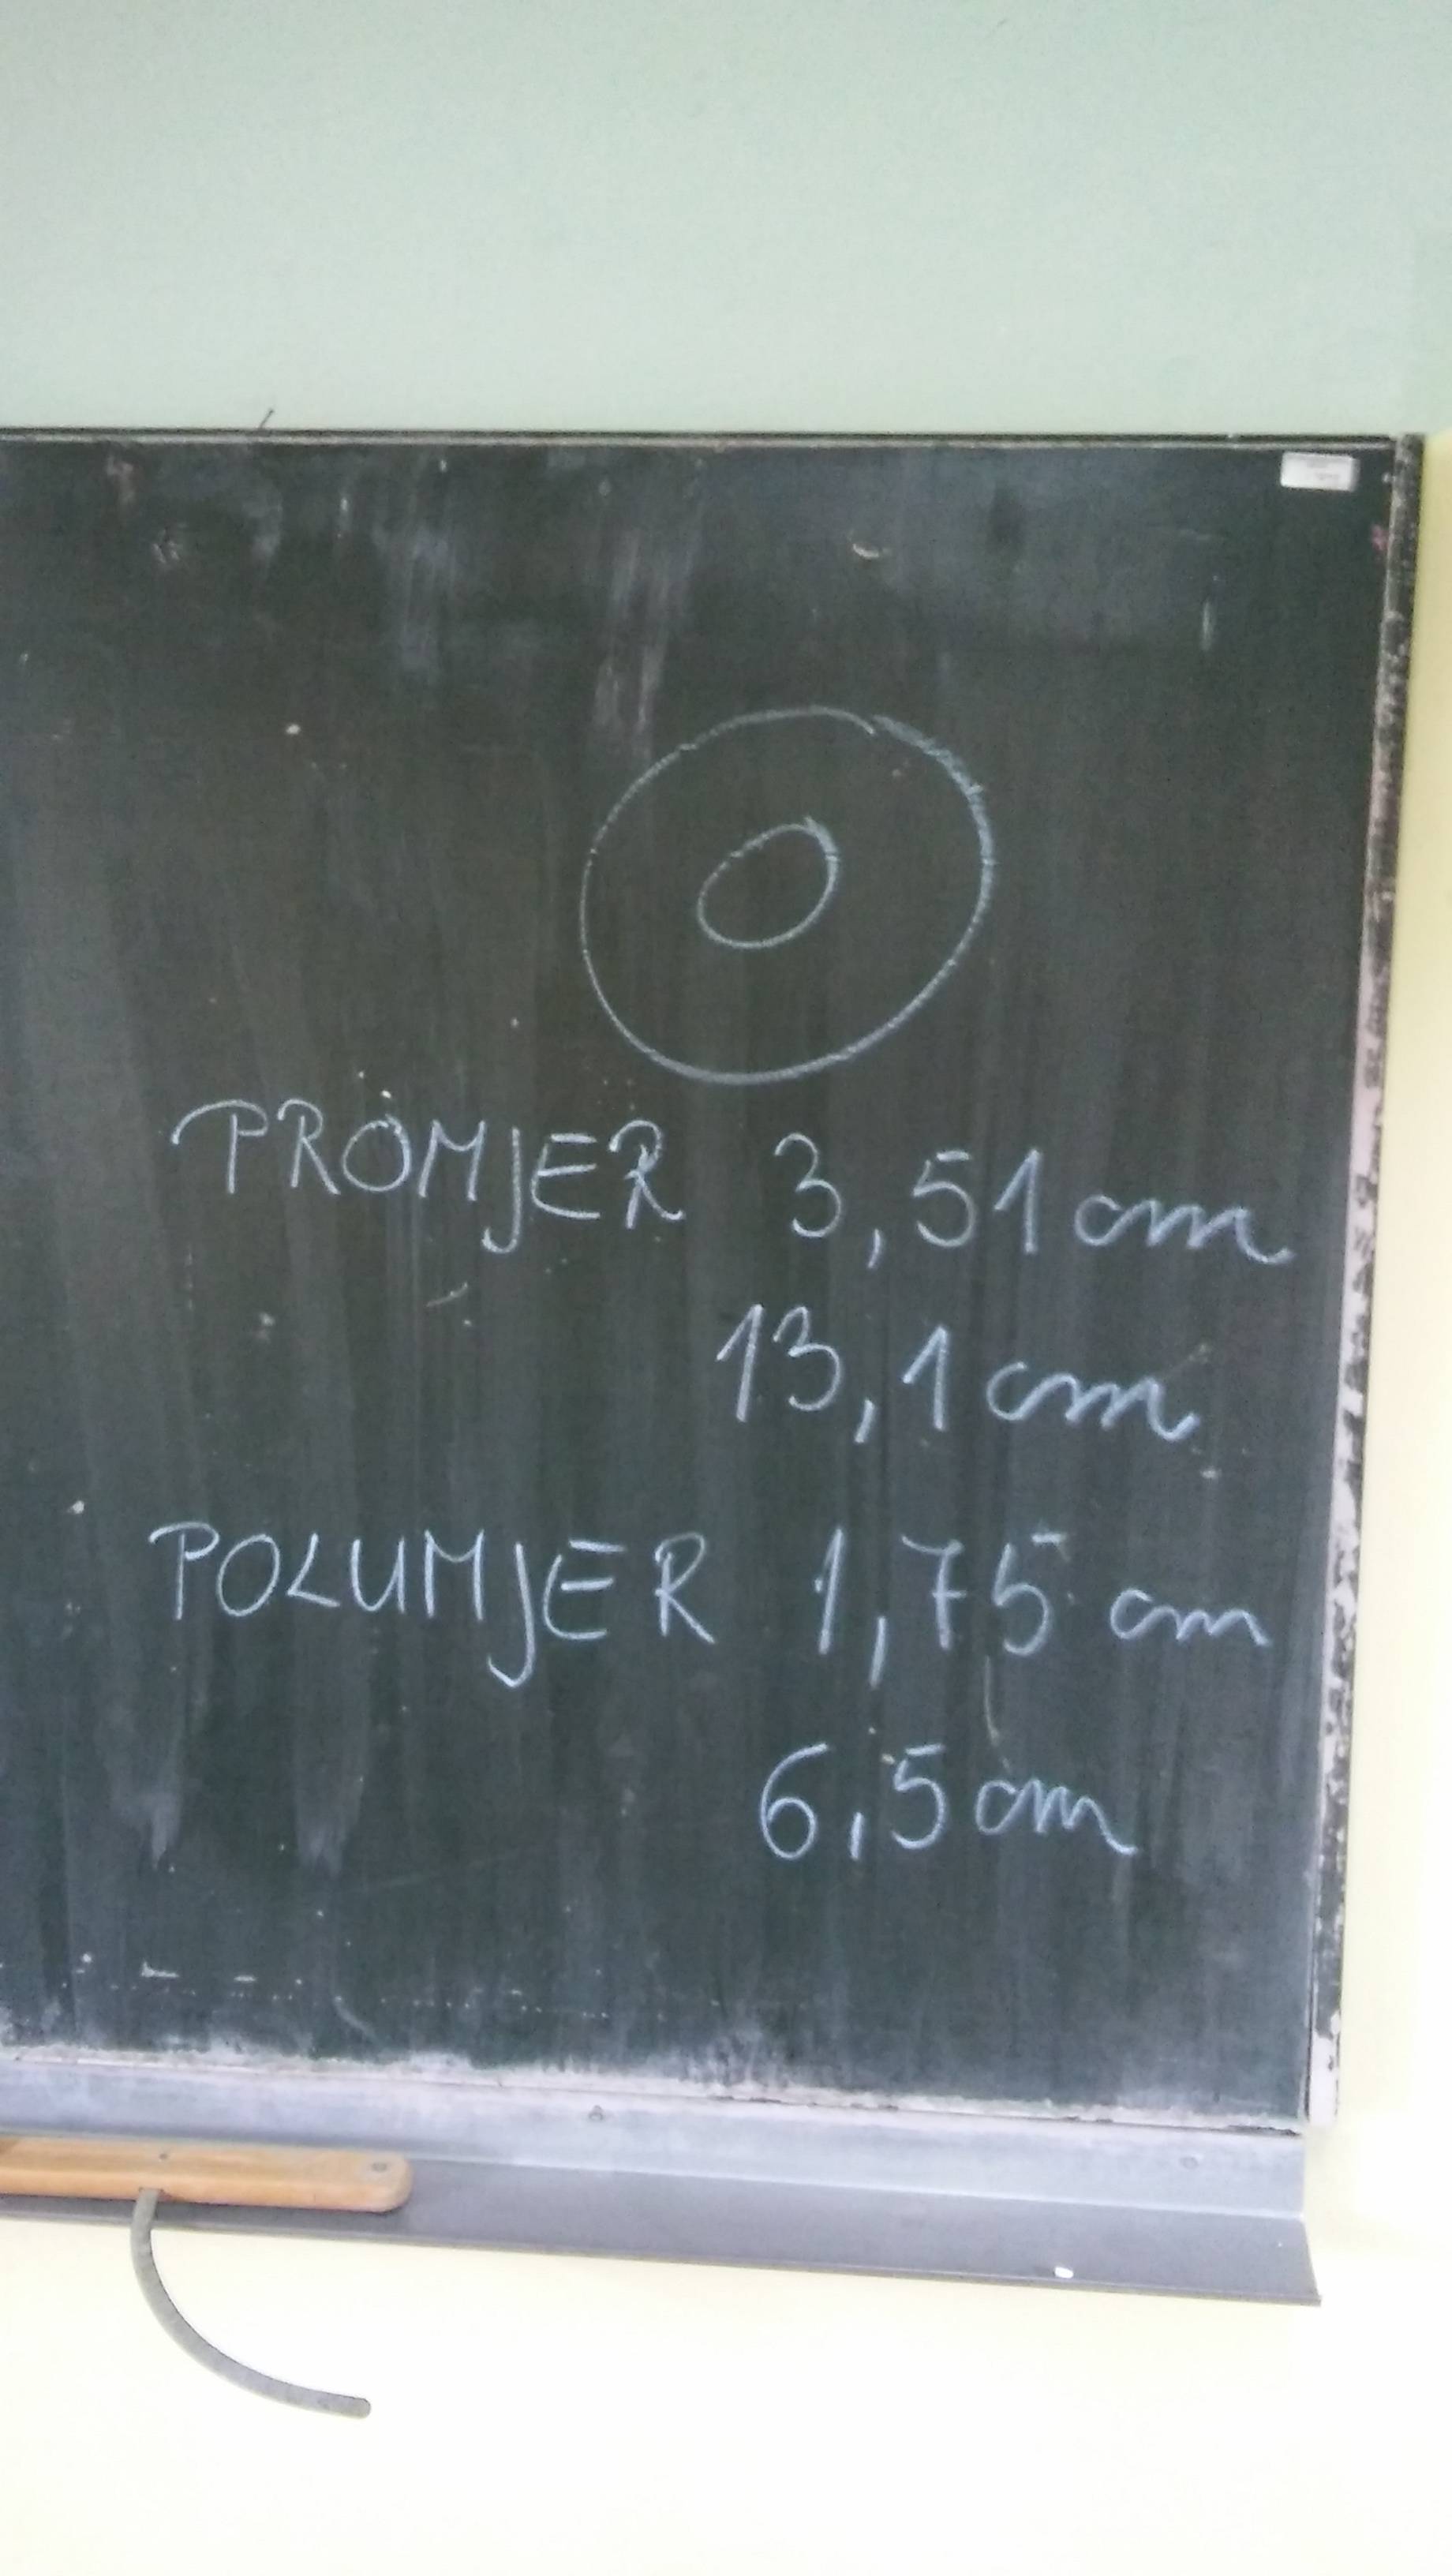 PROMJER 3,51 cm
13,1 cm
POLUMJER 1,75 cm
6,5 cm